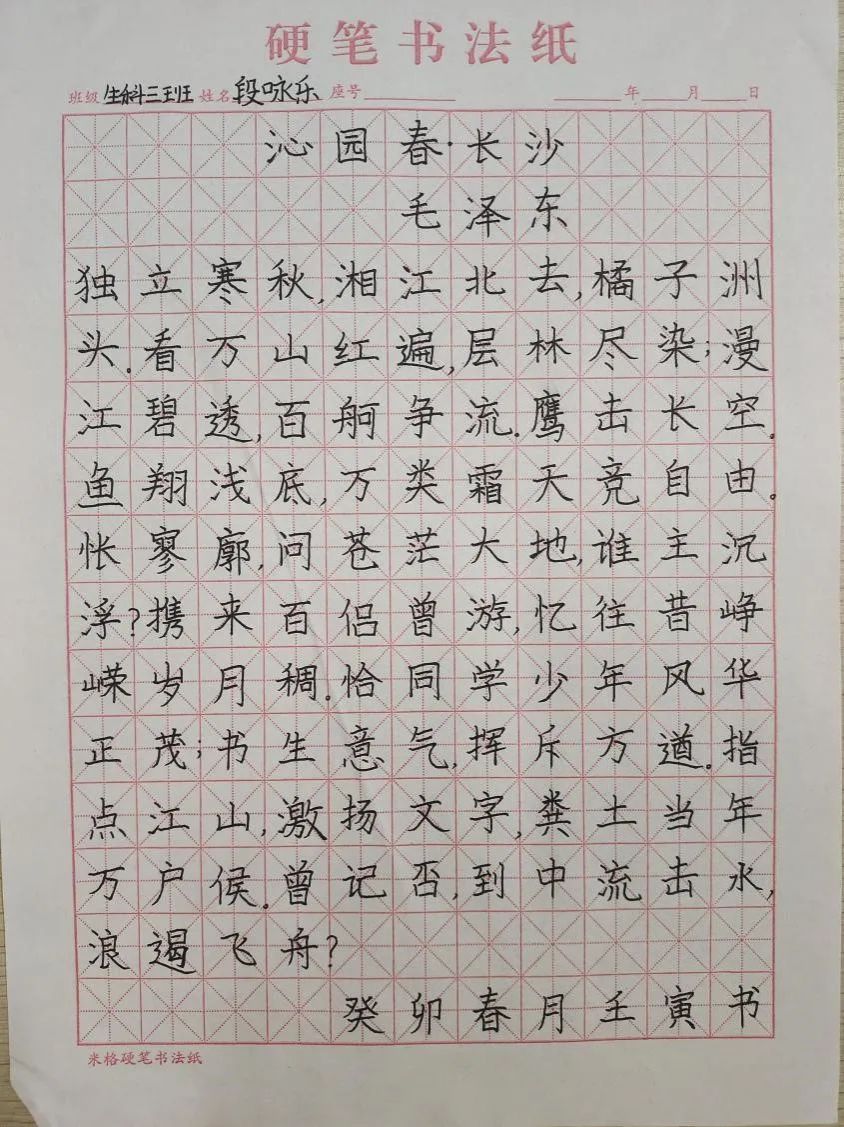 硬笔书法纸
班级 生科三班 姓名 段咏乐 座号 年 月 日
沁园春·长沙
毛泽东
独立寒秋,湘江北去,橘子洲
头.看万山红遍,层林尽染;漫
江碧透,百舸争流.鹰击长空.
鱼翔浅底,万类霜天竞自由.
怅寥廓,问苍茫大地,谁主沉
浮?携来百侣曾游,忆往昔峥
嵘岁月稠.恰同学少年风华
正茂;书生意气,挥斥方遒.指
点江山,激扬文字,粪土当年
万户侯.曾记否,到中流击水,
浪遏飞舟?
癸卯春月壬寅书
米格硬笔书法纸